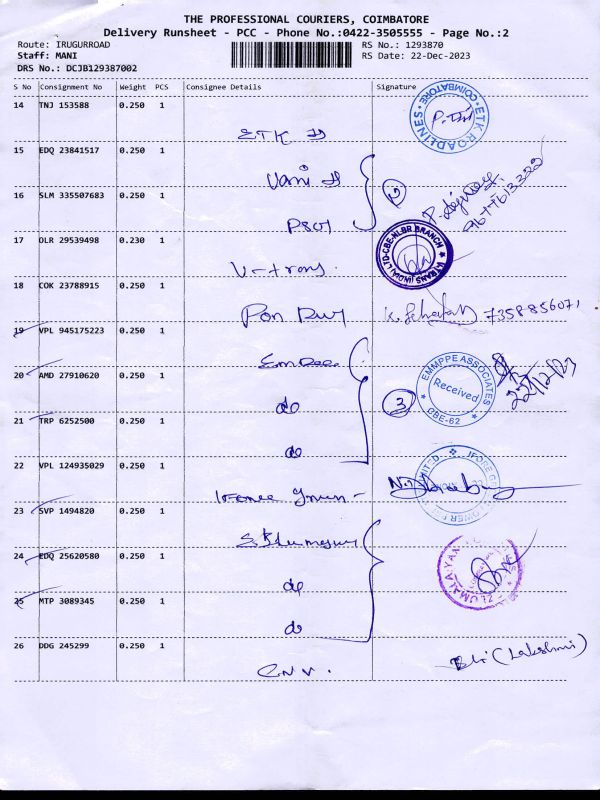 THE PROFESSIONAL COURIERS, COIMBATORE
Delivery Runsheet - PCC - Phone No.:0422-3505555 - Page No.:2
Route: IRUGURROAD
Staff: MANI
DRS No.: DCJB129387002
RS No.: 1293870
RS Date: 22-Dec-2023
S No Consignment No Weight PCS Consignee Details Signature
14 TNJ 153588 0.250 1
ETK
ETK ROADLINES COIMBATORE
15 EDQ 23841517 0.250 1
Vani
16 SLM 335507683 0.250 1
2
9677613322
17 DLR 29539498 0.230 1
V-trans.
V-TRANS (INDIA) LTD-CBE-NLBR BRANCH
18 COK 23788915 0.250 1
Pon
7358856071
19 VPL 945175223 0.250 1
Emdee
20 AMD 27910620 0.250 1
do
EMMPPE ASSOCIATES
Received
CBE-62
22/12/23
3
21 TRP 6252500 0.250 1
do
22 VPL 124935029 0.250 1
23 SVP 1494820 0.250 1
24 EDQ 25620580 0.250 1
do
25 MTP 3089345 0.250 1
do
26 DDG 245299 0.250 1
(Lakshmi)